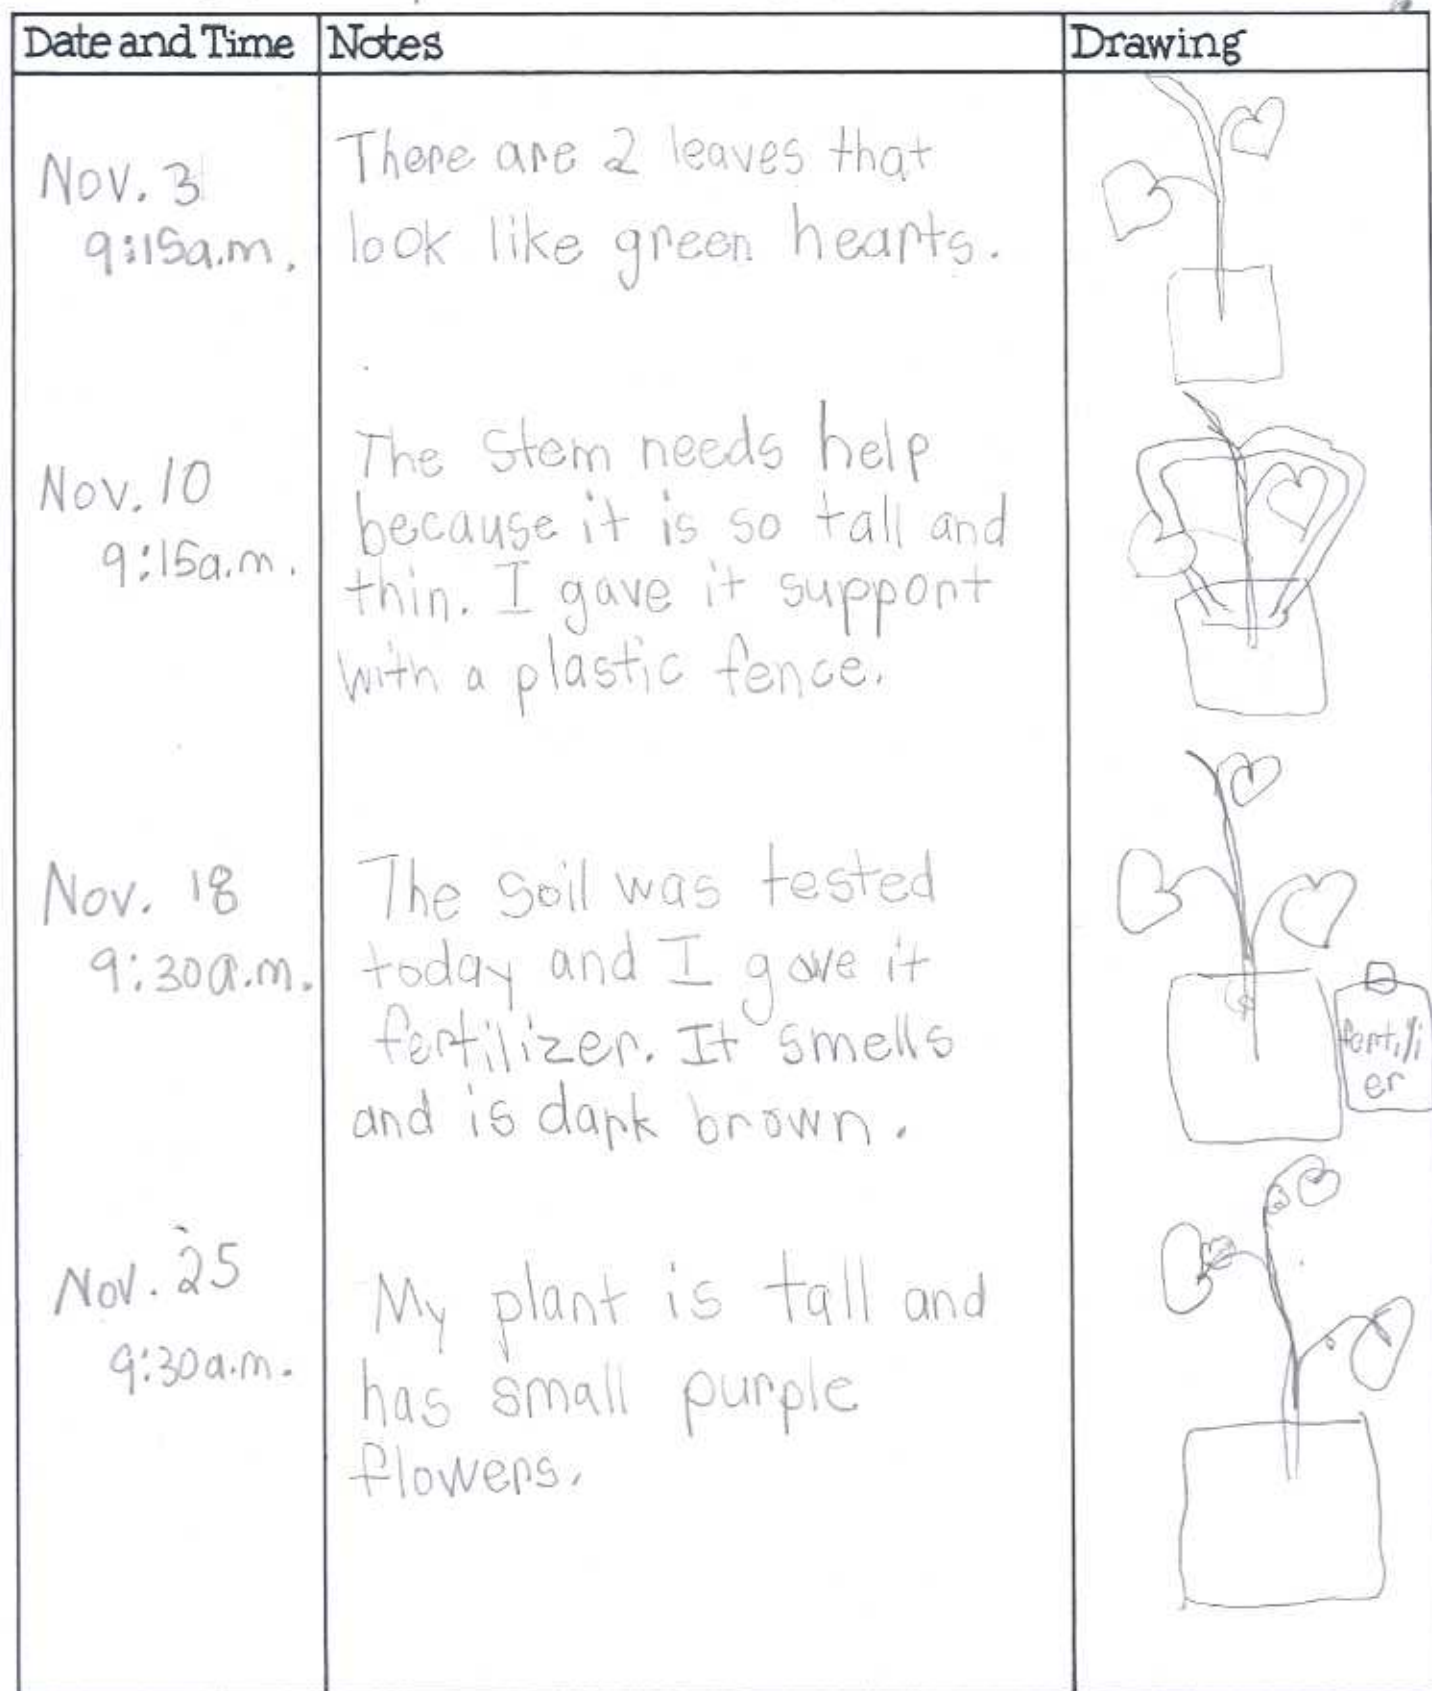 Date and Time Notes Drawing
Nov. 3
9:15a.m.
There are 2 leaves that
look like green hearts.
Nov. 10
9:15a.m.
The stem needs help
because it is so tall and
thin. I gave it support
with a plastic fence.
Nov. 18
9:30a.m.
The soil was tested
today and I gave it
fertilizer. It smells
and is dark brown.
fertili
er
Nov. 25
9:30a.m.
My plant is tall and
has small purple
flowers.